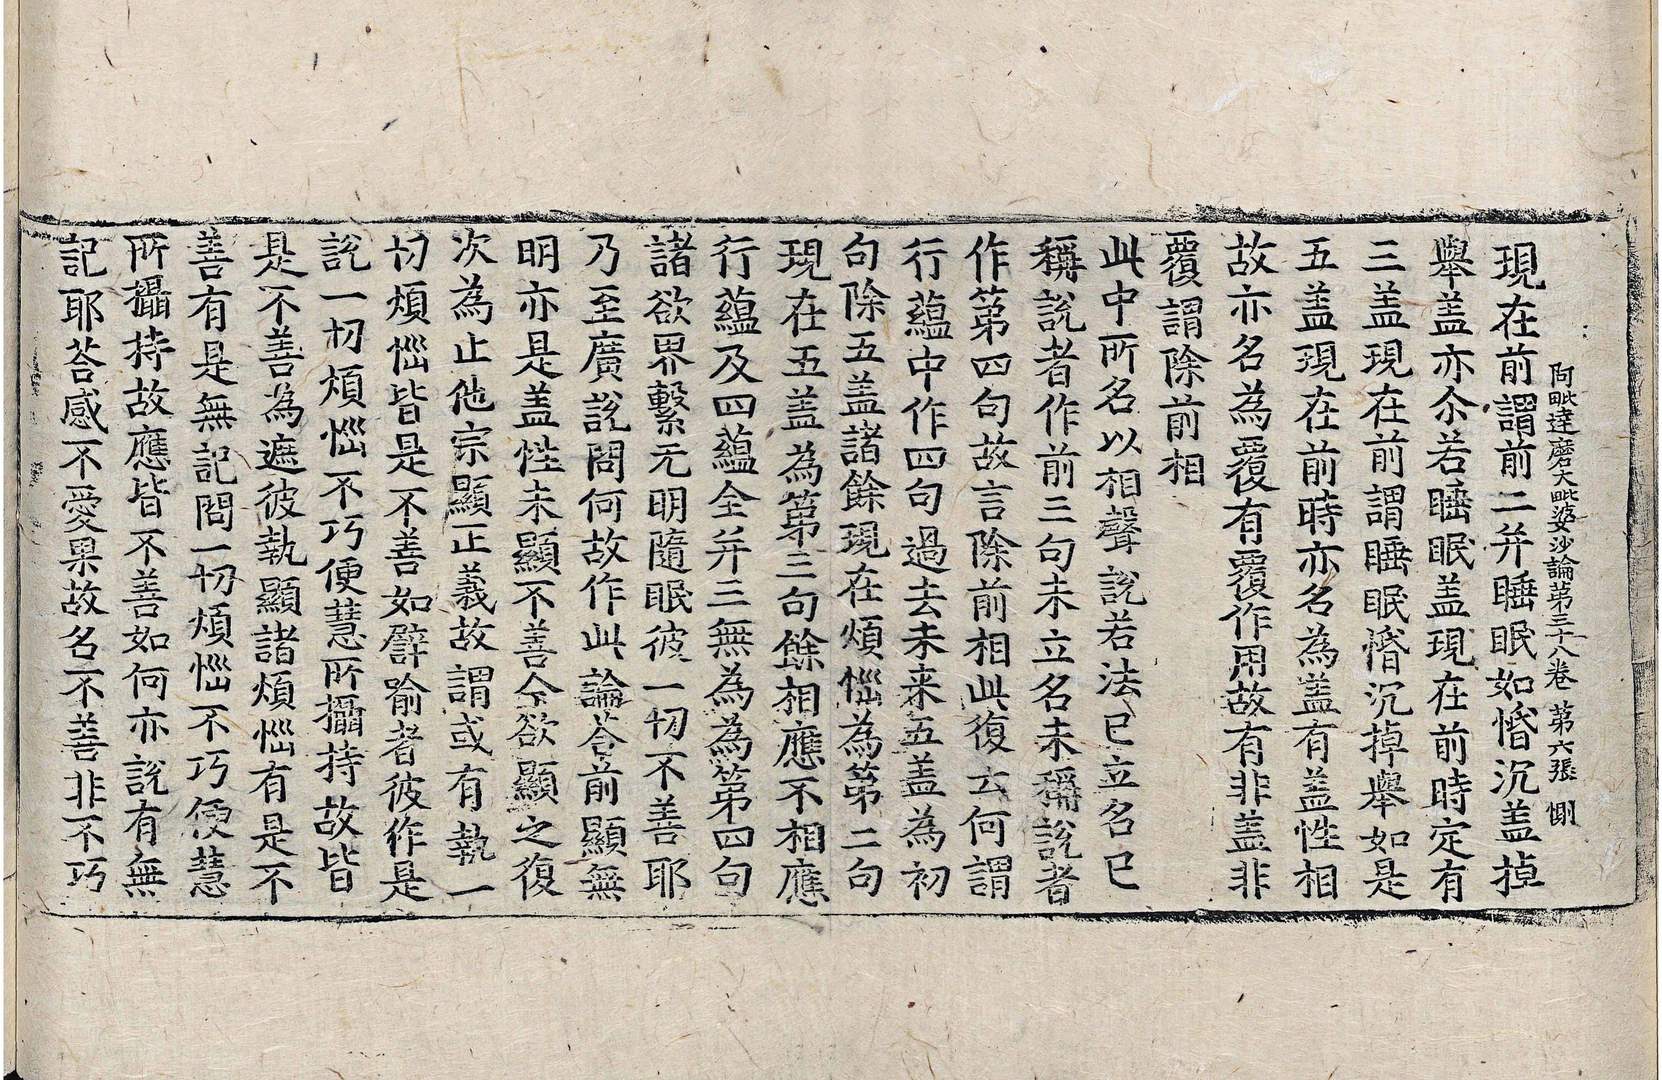 阿毗達磨大毗婆沙論第三十八卷 第六張 惻
現在前謂前二并睡眠如惛沉盖掉
舉盖亦尒若睡眠盖現在前時定有
三盖現在前謂睡眠惛沉掉舉如是
五盖現在前時亦名為盖有盖性相
故亦名為覆有覆作用故有非盖非
覆謂除前相
此中所名以相聲說若法已立名已
稱說者作前三句未立名未稱說者
作第四句故言除前相此復云何謂
行蘊中作四句過去未来五盖為初
句除五盖諸餘現在煩惱為第二句
現在五盖為第三句餘相應不相應
行蘊及四蘊全并三無為為第四句
諸欲界繫无明隨眠彼一切不善耶
乃至廣說問何故作此論荅前顯無
明亦是盖性未顯不善今欲顯之復
次為止他宗顯正義故謂或有執一
切煩惱皆是不善如譬喻者彼作是
說一切煩惱不巧便慧所攝持故皆
是不善為遮彼執顯諸煩惱有是不
善有是無記問一切煩惱不巧便慧
所攝持故應皆不善如何亦說有無
記耶荅感不愛果故名不善非不巧